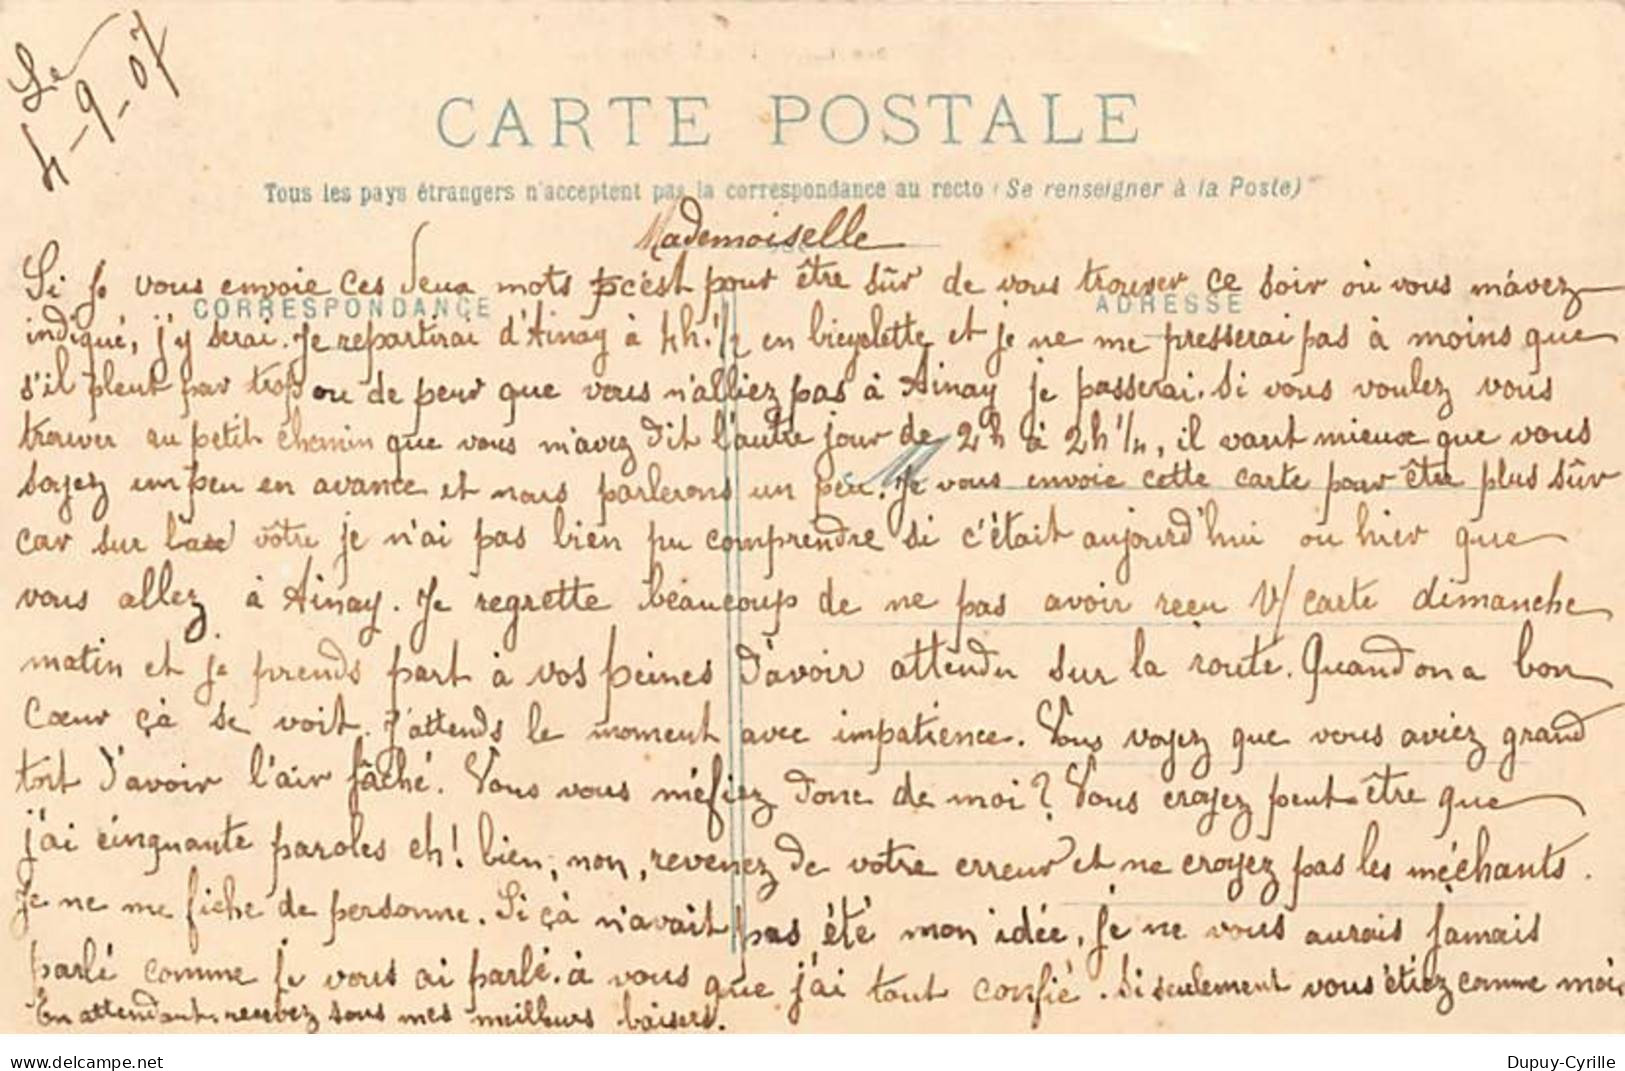 Le
4-9-07
CARTE POSTALE
Tous les pays étrangers n'acceptent pas la correspondance au recto (Se renseigner à la Poste)
Mademoiselle
Si je vous envoie ces deux mots c'est pour être sûr de vous trouver ce soir où vous m'avez
CORRESPONDANCE ADRESSE
indiqué, j'y serai. Je repartirai d'Ainay à 4h.1/2 en bicyclette et je ne me presserai pas à moins que
s'il pleut par trop ou de peur que vous n'alliez pas à Ainay je passerai. Si vous voulez vous
trouver au petit chemin que vous m'avez dit l'autre jour de 2h à 2h 1/4, il vaut mieux que vous
soyez un peu en avance et nous parlerons un peu. Je vous envoie cette carte pour être plus sûr
car sur la vôtre je n'ai pas bien pu comprendre si c'était aujourd'hui ou hier que
vous allez à Ainay. Je regrette beaucoup de ne pas avoir reçu V/ carte dimanche
matin et je prends part à vos peines d'avoir attendu sur la route. Quand on a bon
cœur çà se voit. J'attends le moment avec impatience. Vous voyez que vous aviez grand
tort d'avoir l'air fâché. Vous vous méfiez donc de moi? Vous croyez peut-être que
j'ai cinquante paroles eh! bien, non, revenez de votre erreur et ne croyez pas les méchants.
Je ne me fiche de personne. Si çà n'avait pas été mon idée, je ne vous aurais jamais
parlé comme je vous ai parlé. à vous que j'ai tout confié. Si seulement vous étiez comme moi.
En attendant, recevez sous mes meilleurs baisers.
www.delcampe.net
Dupuy-Cyrille